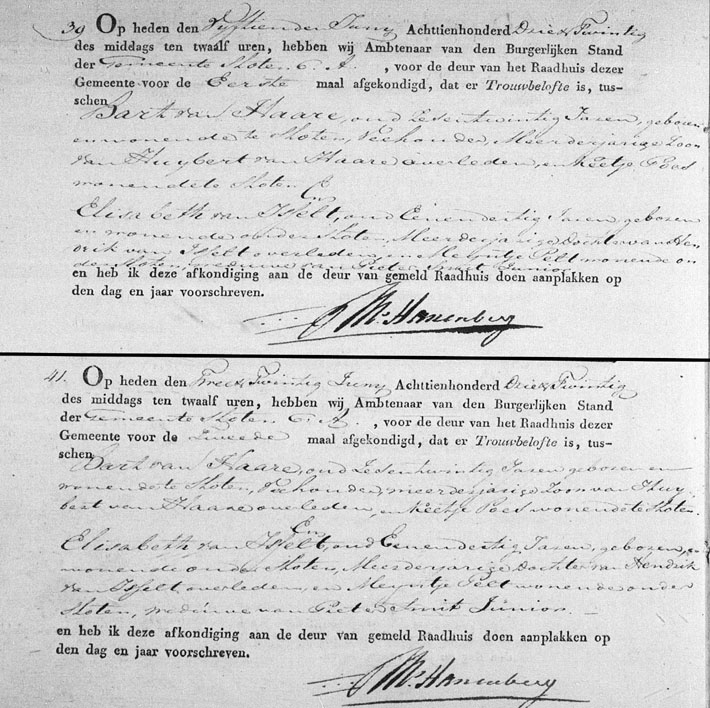 39 Op heden den Vyftienden Juny Achttienhonderd Drie & Twintig
des middags ten twaalf uren, hebben wij Ambtenaar van den Burgerlijken Stand
der Gemeente Sloten C. A. , voor de deur van het Raadhuis dezer
Gemeente voor de Eerste maal afgekondigd, dat er Trouwbelofte is, tus-
schen
Bart van Haare, oud Zesentwintig Jaren, geboren
en wonende te Sloten, Veehouder, Meerderjarige Zoon
van Huybert van Haare overleden, en Neeltje Poes
wonende te Sloten
En
Elisabeth van Yselt, oud Eenendertig Jaren, geboren
en wonende onder Sloten, Meerderjarige Dochter van Hen
drik van Yselt overleden, en Meyntje Pelt wonende on
der Sloten, weduwe van Pieter Smit Junior
en heb ik deze afkondiging aan de deur van gemeld Raadhuis doen aanplakken op
den dag en jaar voorschreven.
Hanenberg
41. Op heden den Twee & Twintig Juny Achttienhonderd Drie & Twintig
des middags ten twaalf uren, hebben wij Ambtenaar van den Burgerlijken Stand
der Gemeente Sloten C. A. , voor de deur van het Raadhuis dezer
Gemeente voor de Tweede maal afgekondigd, dat er Trouwbelofte is, tus-
schen
Bart van Haare, oud Zesentwintig Jaren geboren en
wonende te Sloten, Veehouder, meerderjarige Zoon van Huy
bert van Haare overleden, en Neeltje Poes wonende te Sloten
En
Elisabeth van Yselt, oud Eenendertig Jaren, geboren, en
wonende onder Sloten, Meerderjarige Dochter van Hendrik
van Yselt, overleden, en Meyntje Pelt wonende onder
Sloten, weduwe van Pieter Smit Junior.
en heb ik deze afkondiging aan de deur van gemeld Raadhuis doen aanplakken op
den dag en jaar voorschreven.
Hanenberg